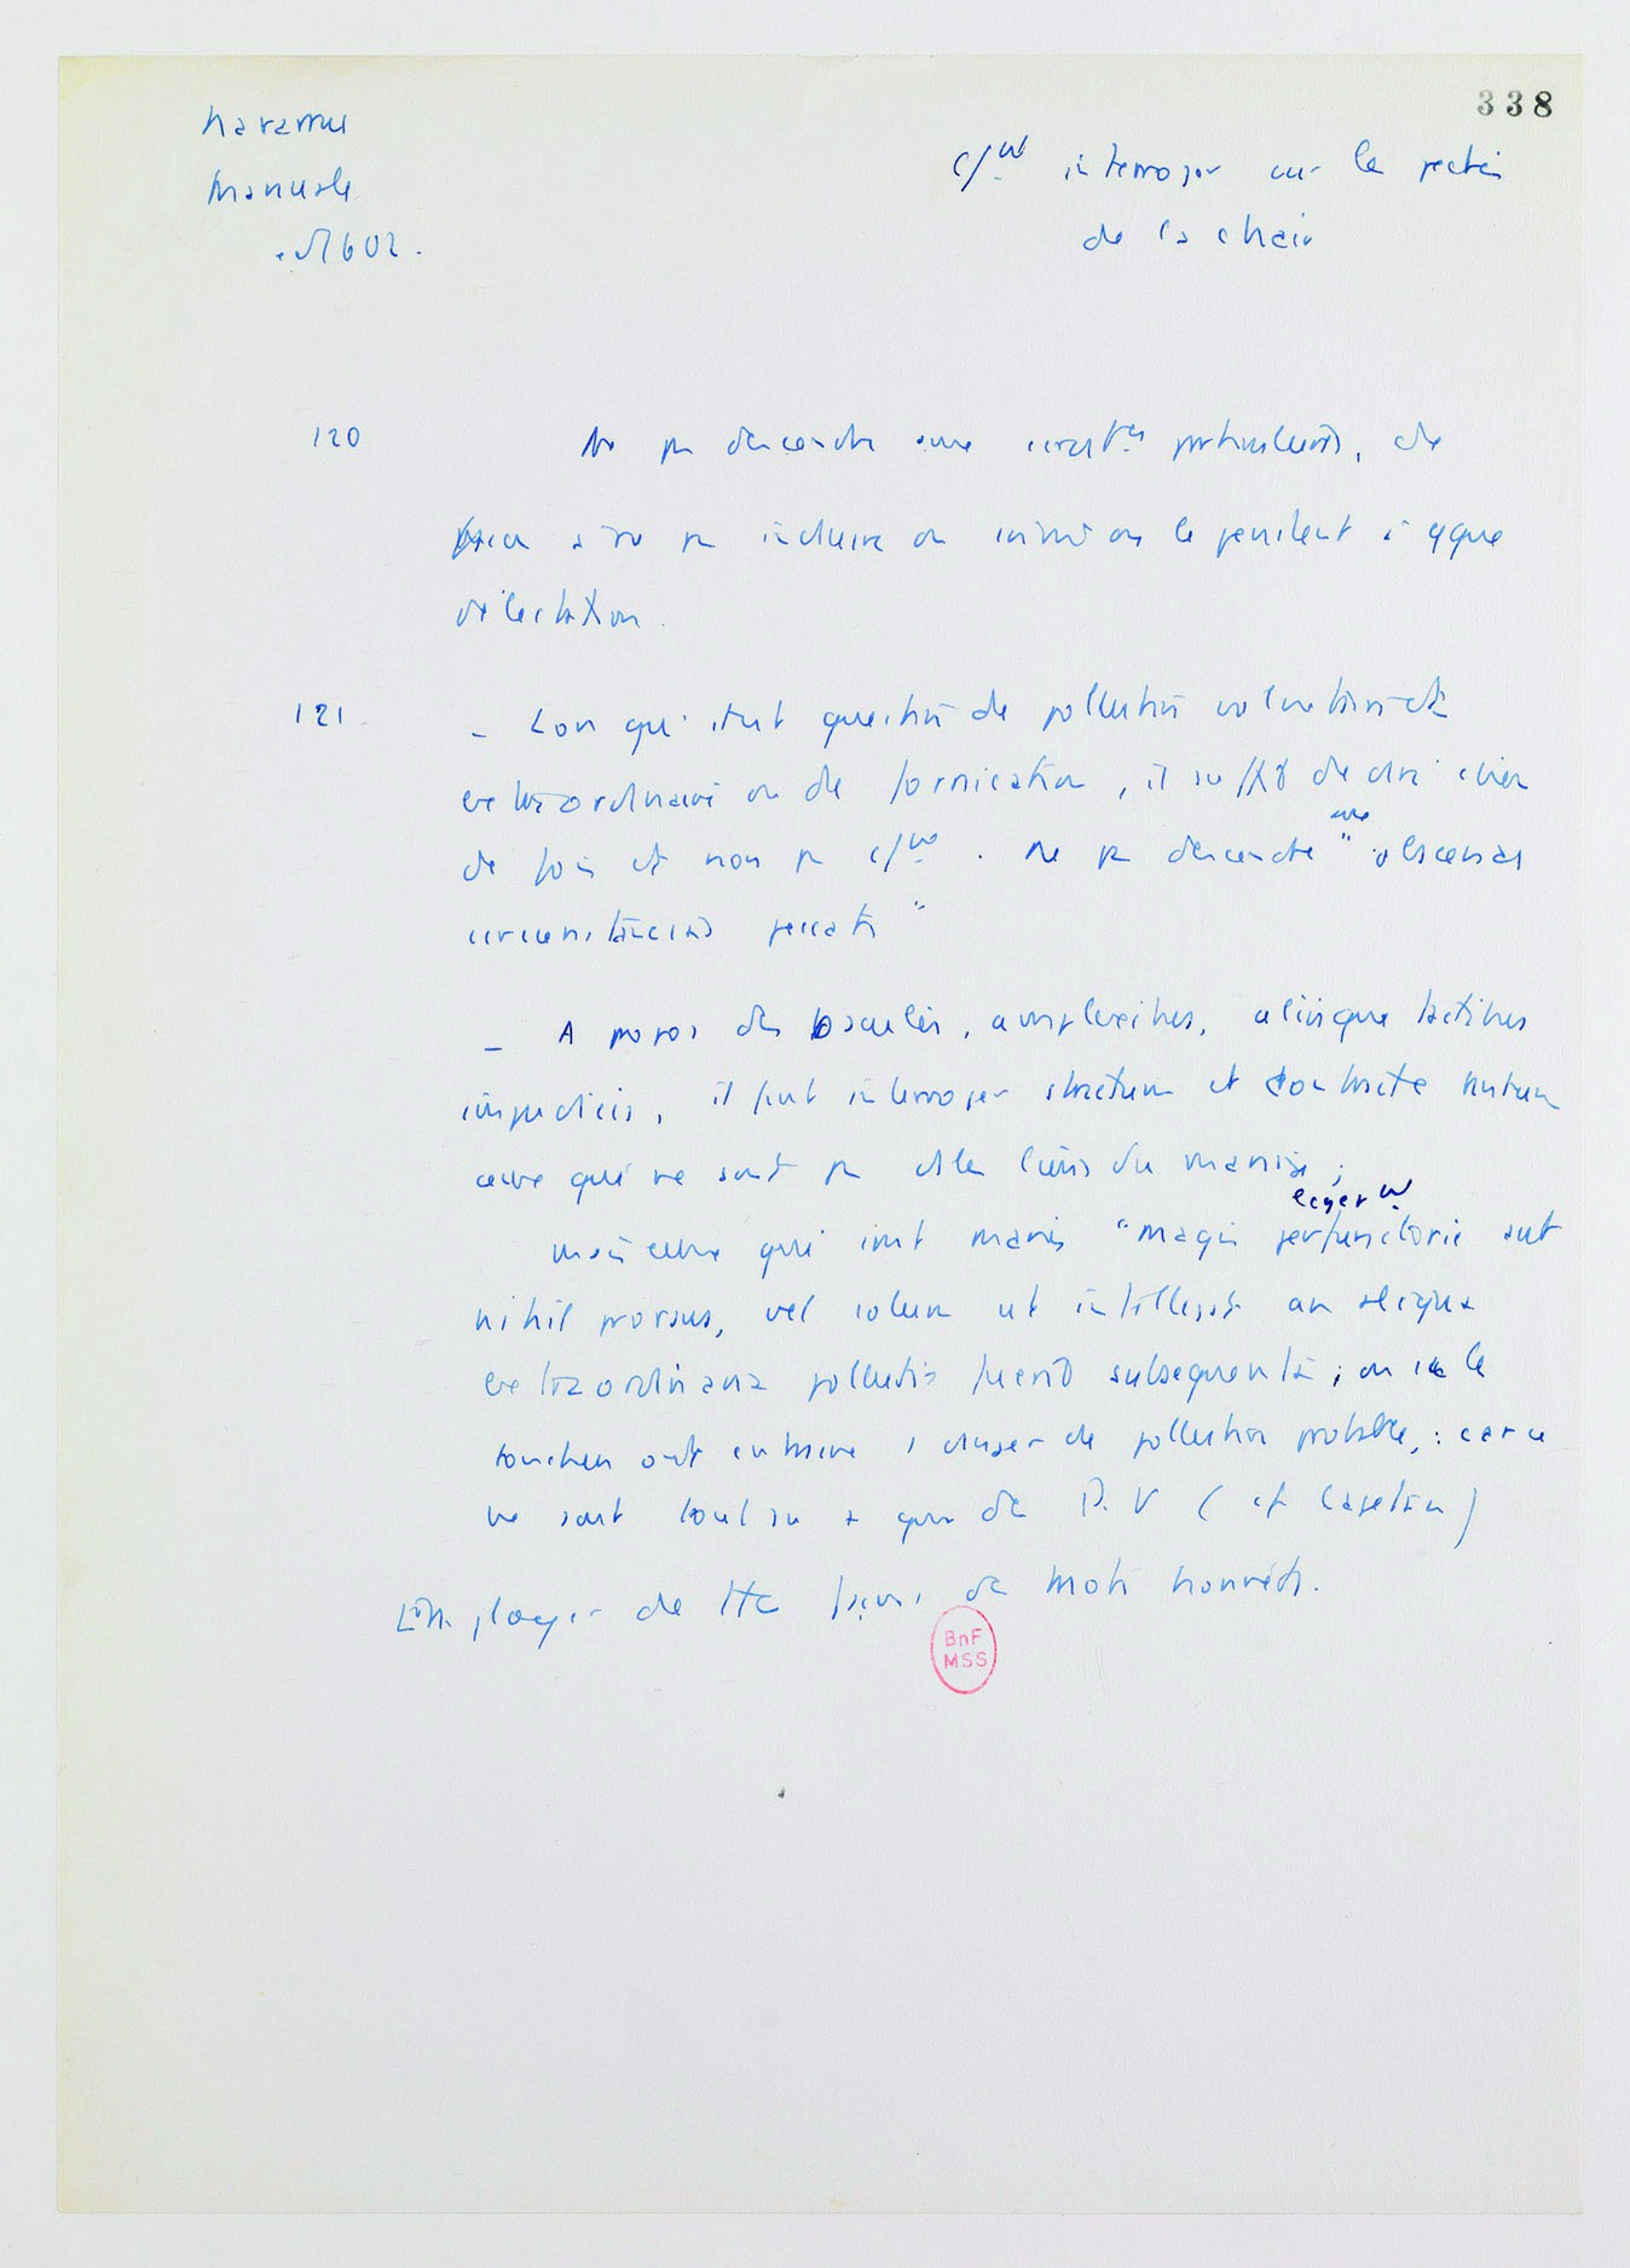 338
Navarrus
Manuale
1602.
c/nt interroger sur les péchés
de la chair
120
Ne pas descendre aux particuliers, de
à ne pas induire en le pénitent à qque
délectation.
121
_ Lors qu'il est question de pollution volontaire et
extraordinaire ou de fornication, il suffit de dire
de fois et non pas c/nt . Ne pas descendre aux " obscenas
circunstancias peccati "
_ A propos des osculis, amplexibus, aliisque tactibus
impudicis, il faut interroger et
ceux qui ne sont pas ds les liens du mariage ;
mais ceux qui sont mariés "magis perfunctorie aut
legert
nihil prorsus, vel solum ut intelligat an aliqua
extraordinaria pollutio fuerit subsequuta ; ou si les
touchers ont danger de pollution probable, : car ce
ne sont tout au + que des P. V (cf Cajetan)
Employer de tte façon des mots honnêtes.
BnF
MSS